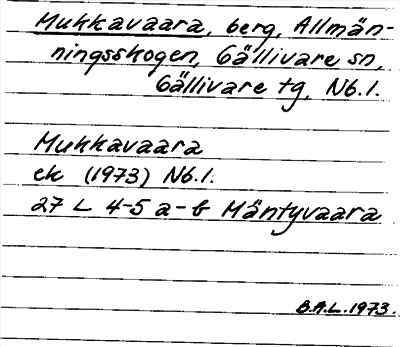 Mukkavaara, berg, Allmän-
ningsskogen, Gällivare sn,
Gällivare tg, Nb.l.
Mukkavaara
ek (1973) Nb.l.
27 L 4-5 a-b Mäntyvaara
B.A.L. 1973.